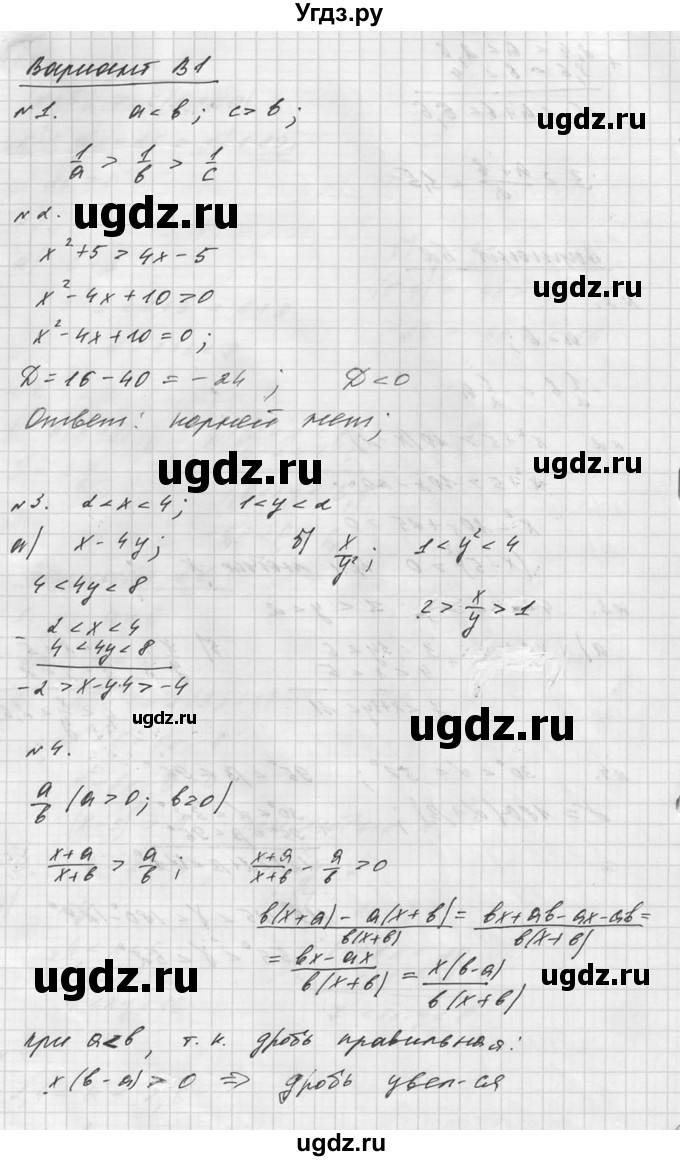 Угдз.ру
Вариант В1
№1. a < в ; c > в ;
1/a > 1/в > 1/c
ugdz.ru ugdz.ru
№2.
x² + 5 > 4x − 5
x² − 4x + 10 > 0
ugdz.ru
x² − 4x + 10 = 0 ;
D = 16 − 40 = −24 ; D < 0
Ответ: корней нет;
ugdz.ru ugdz.ru
№3. 2 < x < 4 ; 1 < y < 2
а) x − 4y ; б) x/y² ; 1 < y² < 4
4 < 4y < 8
2 > x/y > 1
− 2 < x < 4
4 < 4y < 8
−2 > x − y4 > −4
ugdz.ru ugdz.ru
№4.
a/в (a > 0 ; в > 0)
(x+a)/(x+в) > a/в ; (x+a)/(x+в) − a/в > 0
(в(x+a) − a(x+в))/(в(x+в)) = (вx + aв − ax − aв)/(в(x+в)) =
= (вx − ax)/(в(x+в)) = (x(в−a))/(в(x+в))
ugdz.ru ugdz.ru
при a < в, т.к. дробь правильная:
x(в−a) > 0 ⇒ дробь увел-ся
ugdz.ru